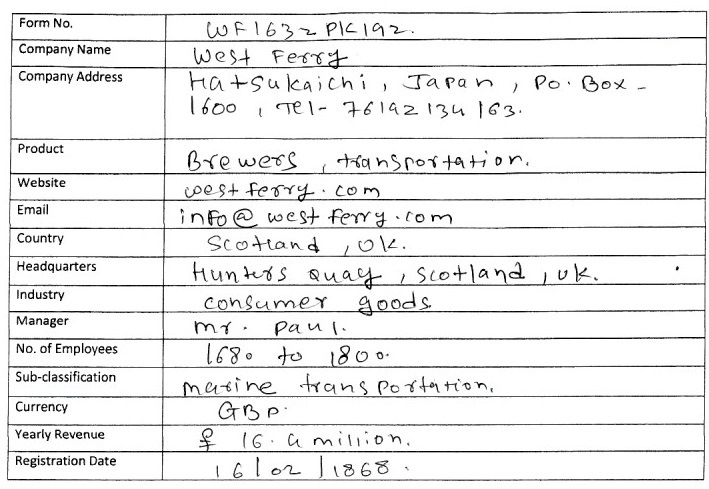 Form No. WF1632PK192.
Company Name West Ferry
Company Address Hatsukaichi, Japan, Po. Box -
1600, Tel- 76192134163.
Product Brewers, transportation.
Website westferry.com
Email info@westferry.com
Country Scotland, UK.
Headquarters Hunters Quay, Scotland, UK.
Industry consumer goods.
Manager mr. Paul.
No. of Employees 1680 to 1800.
Sub-classification marine transportation.
Currency GBP.
Yearly Revenue £ 16. million.
Registration Date 16/02/1868.